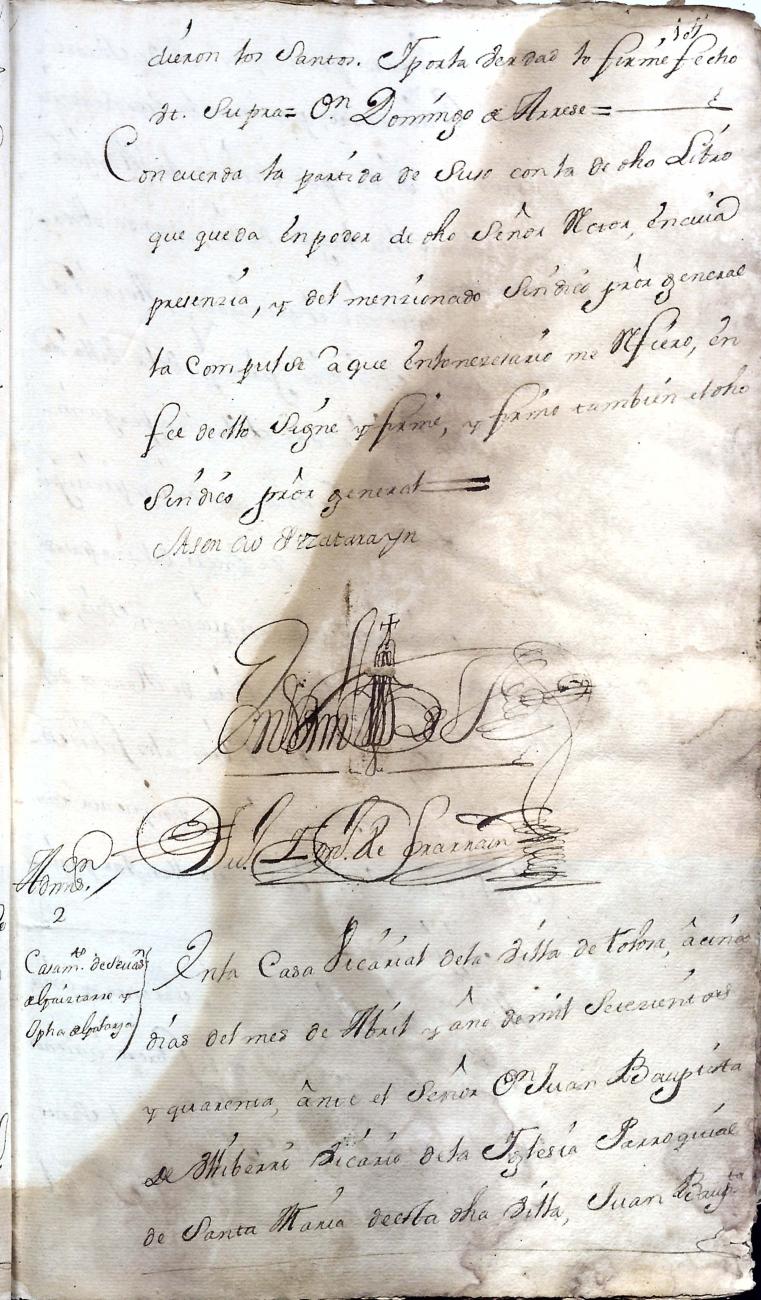 dieron los Santos. Y por la verdad lo firmé fecho
Ut. Supra= Dn Domingo de Arrese=
Concuerda la partida de Suso con la de dho Libro
que queda en poder de dho Señor Retor, en cuia
presenzia, y del menzionado Sindico prör general
la Compulsé a que en lo nezesario me Refiero, en
fee de ello Signé y firmé, y firmó tambien el dho
Sindico prör general
Yrzatarayn
Juan de Larrain
Admon
2
Casamto. de
y
En la Casa Vicarial de la Villa de Tolosa, â cinco
dias del mes de Abril y año de mil Setezientos
y quarenta, ânte el Señor Dn Juan Bauptista
de Vicario de la Yglesia Parroquial
de Santa Maria de esta dha Villa, Juan Baupta